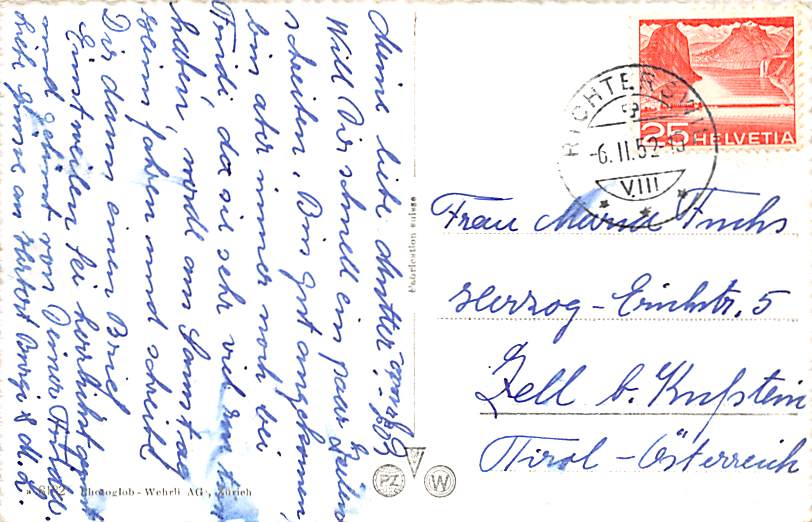 Meine liebe Mutter!
Will Dir schnell ein paar Zeilen
schreiben. Bin gut angekommen,
bin aber immer noch bei
Trudi, da sie sehr viel zum tun
haben, werde am Samstag
heim fahren und schreibe
Dir dann einen Brief
Einstweilen sei herzlichst gegrüßt
und geküsst von Deiner
liebe Grüsse an Herbert Burgi &
Fabrication suisse
Photoglob - Wehrli AG., Zürich
PZ
W
RICHTERSWIL
-6.II.52-
VIII
25 HELVETIA
Frau Maria Fuchs
Herzog-Erichstr. 5
Zell b. Kufstein
Tirol-Österreich